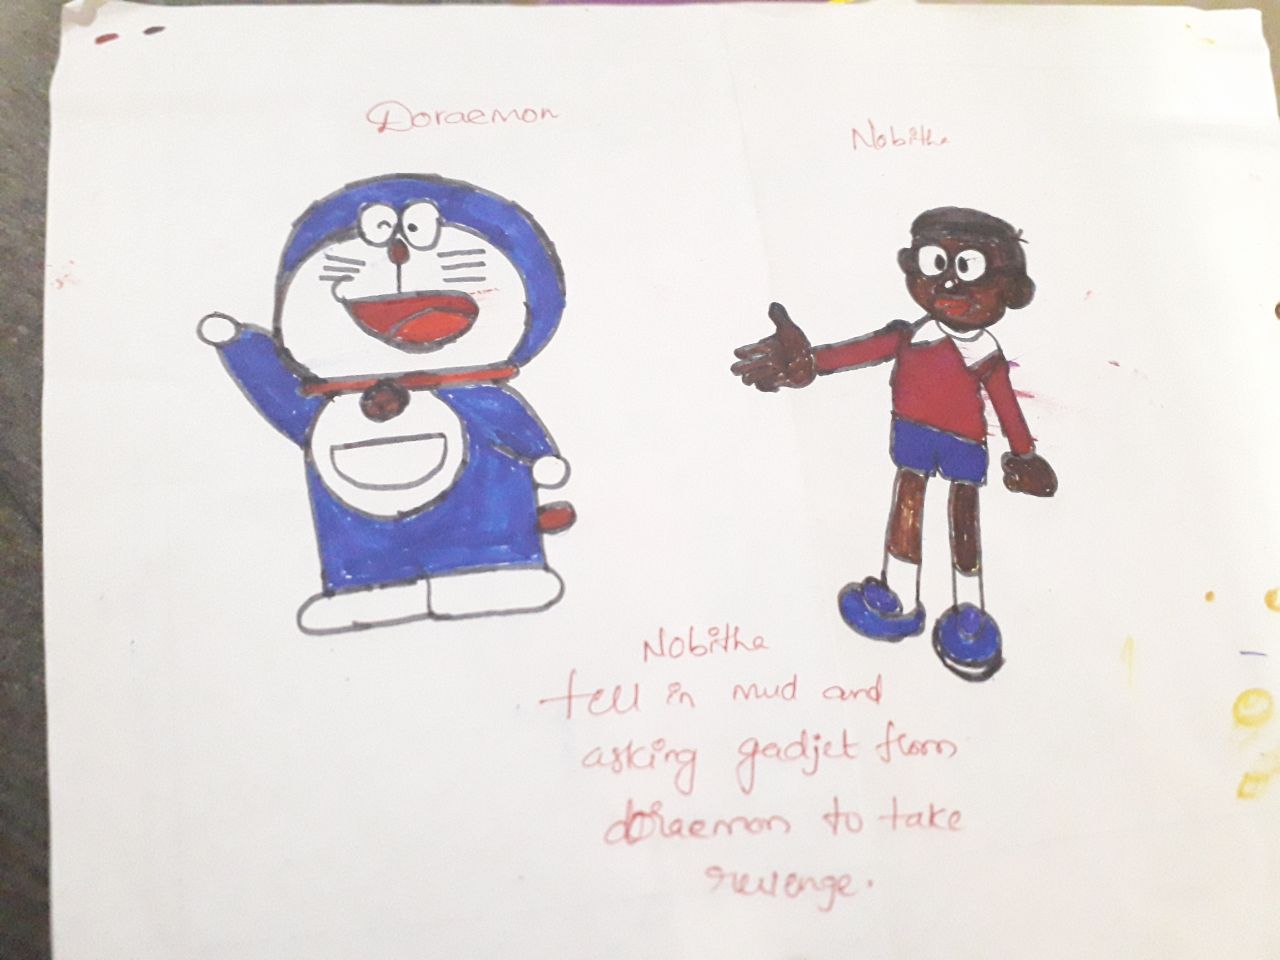 Doraemon
Nobitha
Nobitha
fell in mud and
asking gadjet from
doraemon to take
revenge.